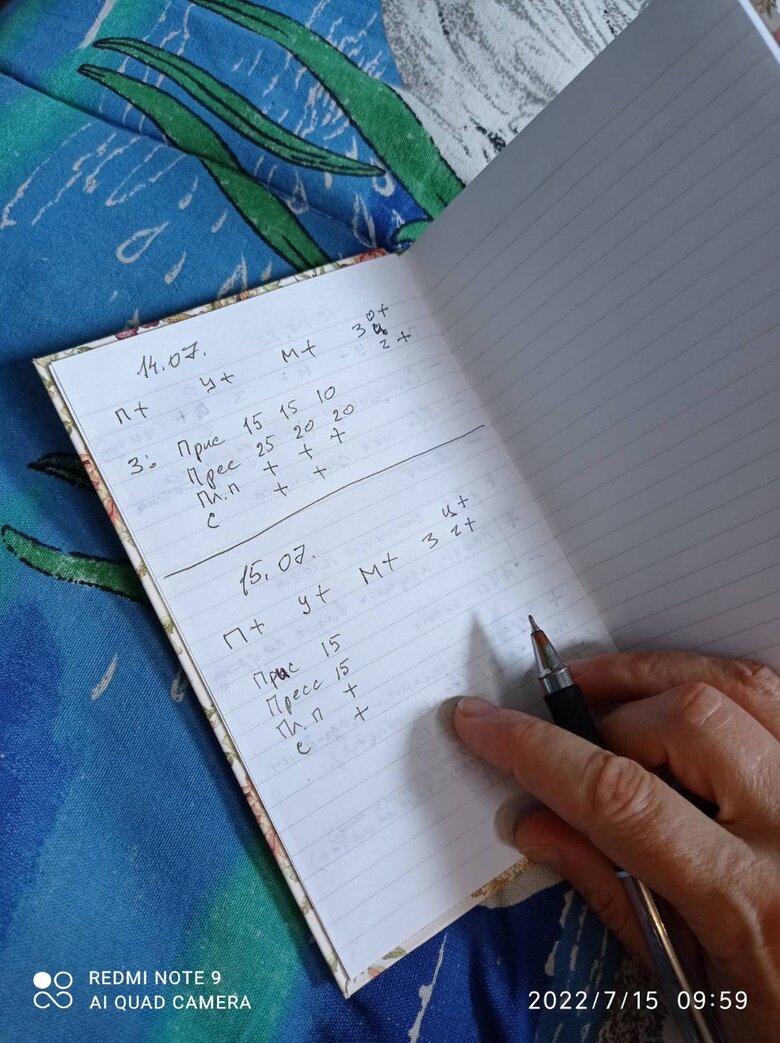 14.07.
П+ У+ М+ З о+
ц
г +
З: Прис 15 15 10
Прес 25 20 20
Пл.п + + +
С + +
15.07.
П+ У+ М+ З ц+
г+
Прис 15
Пресс 15
Пл.п +
С +
REDMI NOTE 9
AI QUAD CAMERA
2022/7/15 09:59